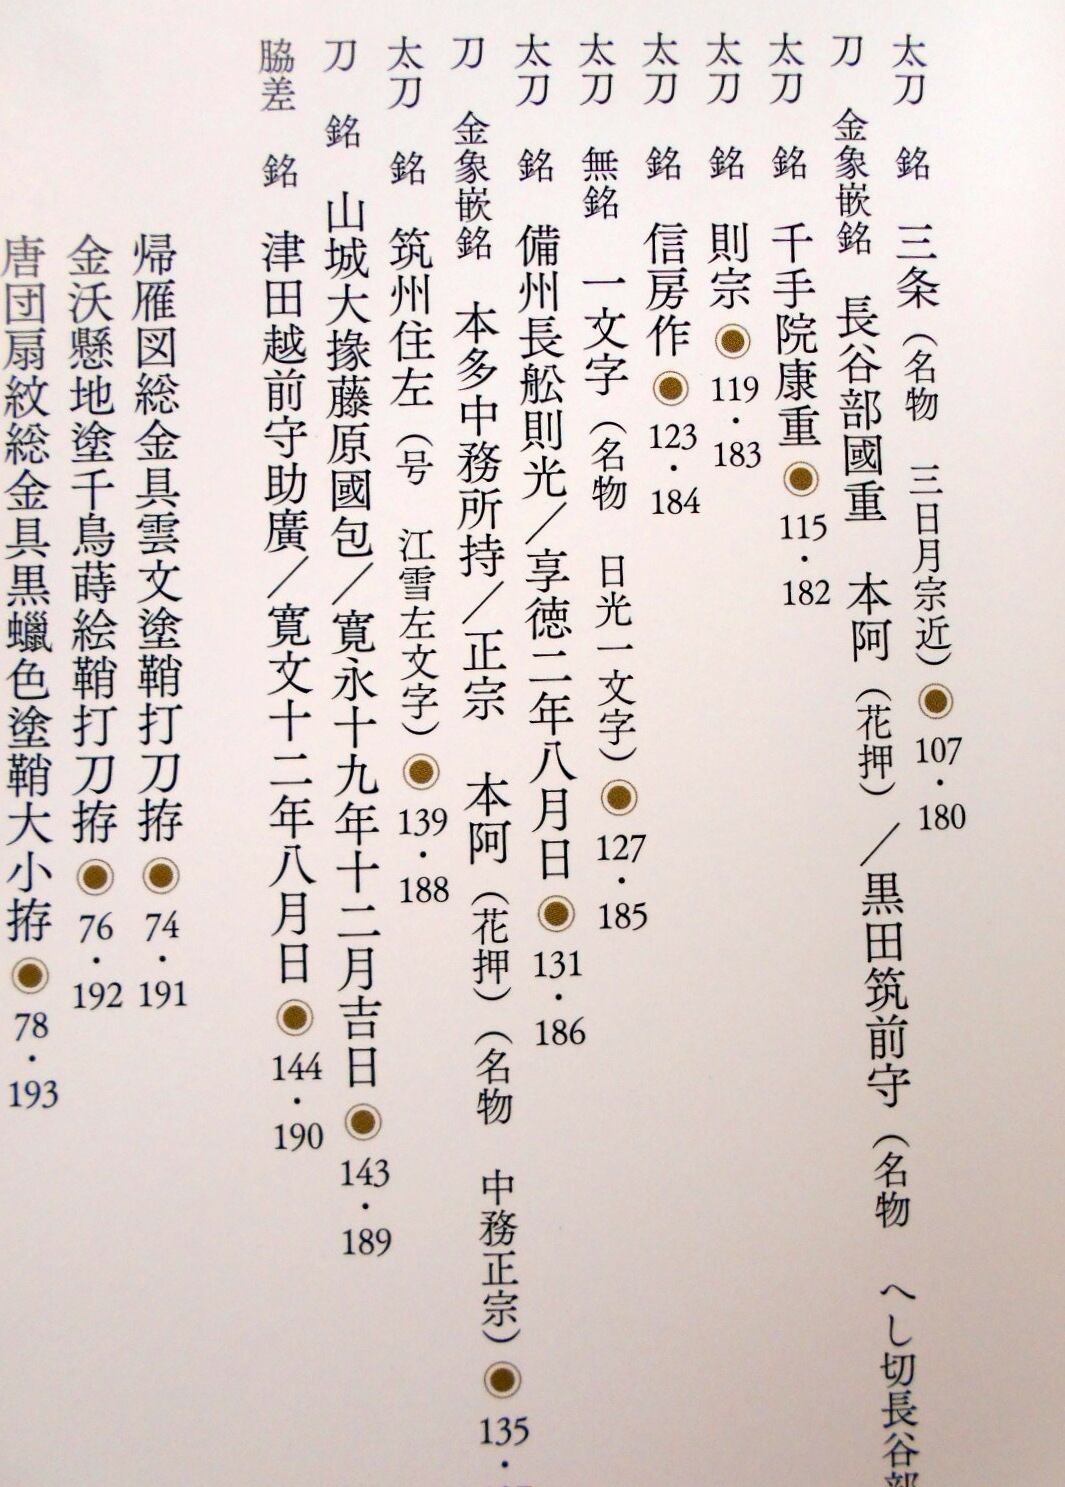 太刀 銘 三条（名物 三日月宗近）◉107・180
刀 金象嵌銘 長谷部國重 本阿（花押）／黒田筑前守（名物 へし切長谷部
太刀 銘 千手院康重◉115・182
太刀 銘 則宗◉119・183
太刀 銘 信房作◉123・184
太刀 無銘 一文字（名物 日光一文字）◉127・185
太刀 銘 備州長舩則光／享徳二年八月日◉131・186
刀 金象嵌銘 本多中務所持／正宗 本阿（花押）（名物 中務正宗）◉135・
太刀 銘 筑州住左（号 江雪左文字）◉139・188
刀 銘 山城大掾藤原國包／寛永十九年十二月吉日◉143・189
脇差 銘 津田越前守助廣／寛文十二年八月日◉144・190
帰雁図総金具雲文塗鞘打刀拵◉74・191
金沃懸地塗千鳥蒔絵鞘打刀拵◉76・192
唐団扇紋総金具黒蠟色塗鞘大小拵◉78・193